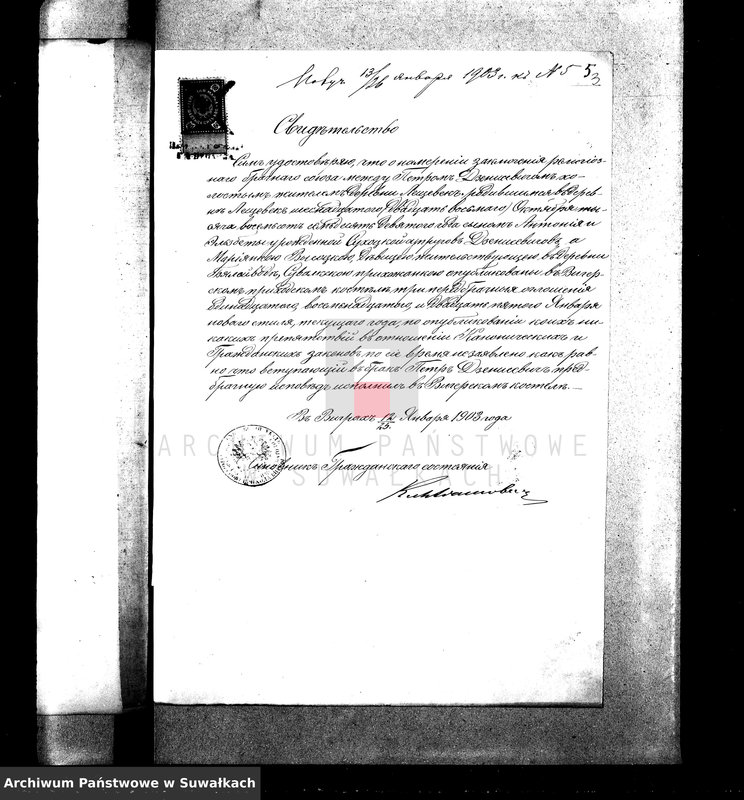 13/26 января 1903 г. къ № 5 53
Свидѣтельство
Симъ удостовѣряю, что о намѣреніи заключенія религіоз-
наго брачнаго союза между Петромъ Дзенисевичемъ хо-
лостымъ жителемъ деревни Лещевекъ, родившимся въ дерев-
нѣ Лещевекъ шеснадцатого (двадцать восьмаго) Октября ты-
сяча восемьсотъ семьдесятъ девятого года сыномъ Антонія и
Эльжбеты урожденной Сухоцкой супруговъ Дзенисевичовъ, а
Маріянною Высоцкою, дѣвицею жительствующею въ деревни
Сувалкскою прихожанкою опубликованы въ Вигер-
скомъ приходскомъ костелѣ три передбрачныя оглашенія
Одинадцатого, восьмнадцатого, и двадцать пятого Января
новаго стиля, текущаго года, по опубликованіи коихъ ни-
какихъ препятствій въ отношеніи Каноническихъ и
Гражданскихъ законовъ по сіе время незаявлено какъ рав-
но что вступающій въ бракъ Петръ Дзенисевичъ пред-
брачную исповѣдь исполнилъ въ Вигерскомъ костелѣ.
Въ Виграхъ 12/25 Января 1903 года
Чиновникъ Гражданскаго состоянія
ARCHIWUM PAŃSTWOWE
W SUWAŁKACH
Archiwum Państwowe w Suwałkach